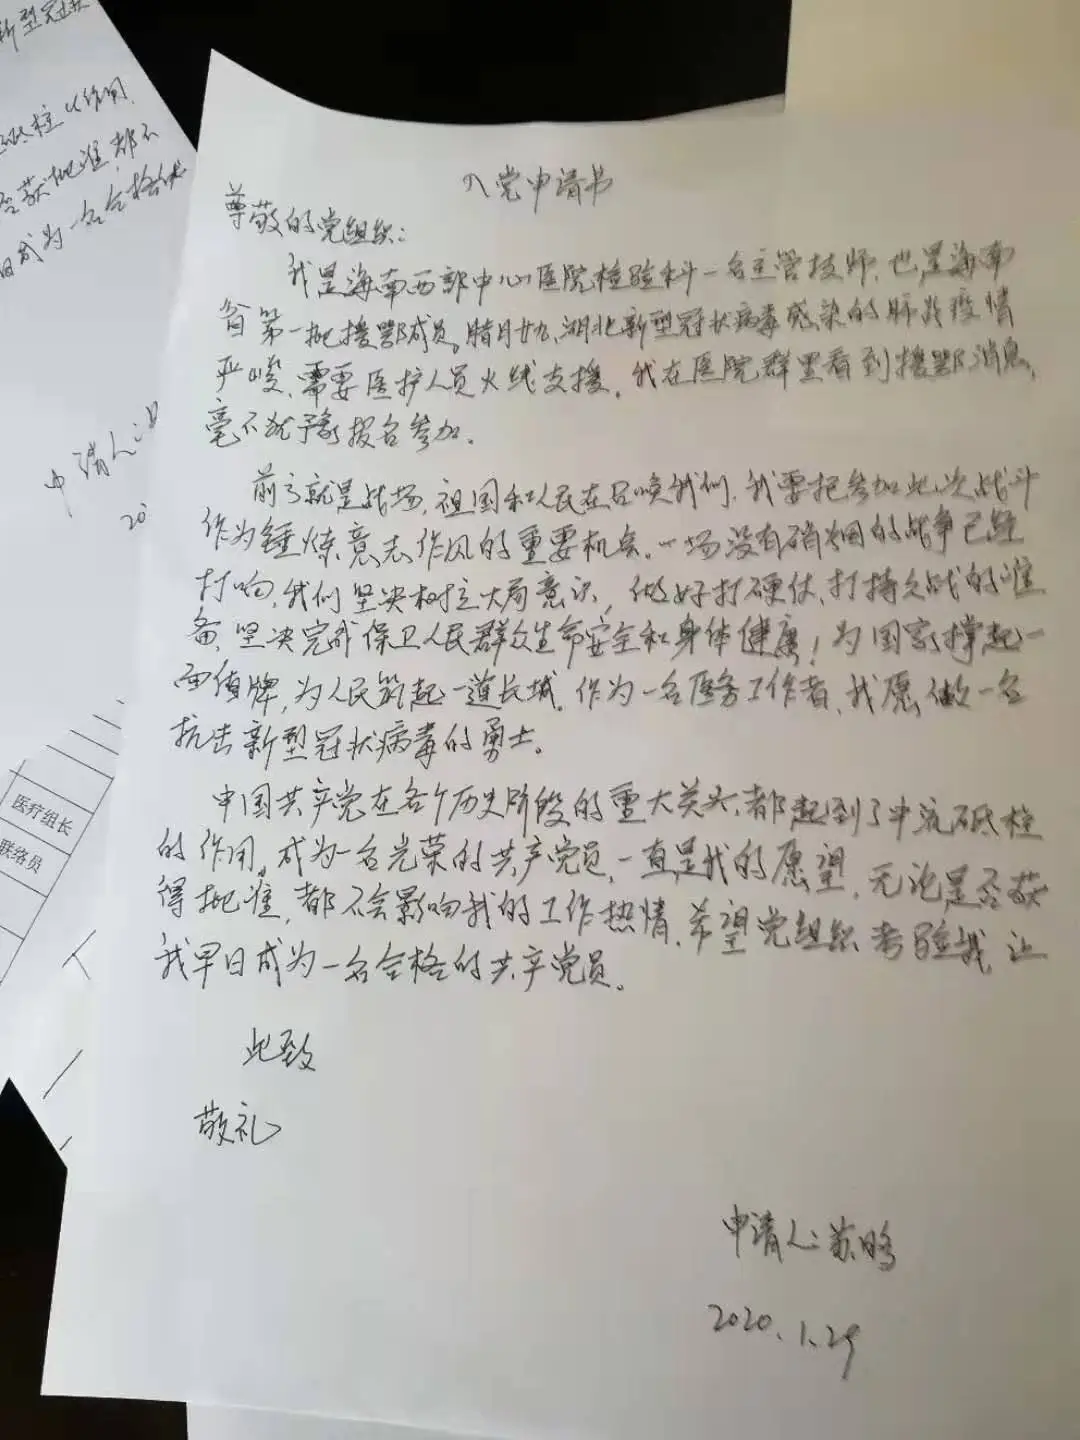 入党申请书
尊敬的党组织:
我是海南西部中心医院检验科一名主管技师,也是海南
省第一批援鄂成员。腊月廿九,湖北新型冠状病毒感染的肺炎疫情
严峻,需要医护人员火线支援。我在医院群里看到援鄂消息,
毫不犹豫报名参加。
前方就是战场,祖国和人民在召唤我们,我要把参加此次战斗
作为锤炼意志作风的重要机会。一场没有硝烟的战争已经
打响,我们坚决树立大局意识,做好打硬仗、打持久战的准
备,坚决完成保卫人民群众生命安全和身体健康!为国家撑起一
面盾牌,为人民筑起一道长城。作为一名医务工作者,我愿做一名
抗击新型冠状病毒的勇士。
中国共产党在各个历史阶段的重大关头,都起到了中流砥柱
的作用。成为一名光荣的共产党员,一直是我的愿望,无论是否获
得批准,都不会影响我的工作热情,希望党组织考验我,让
我早日成为一名合格的共产党员。
此致
敬礼
申请人:苏
2020.1.29
新型冠状
砥柱作用
否获批准,都不
日成为一名合格
申请人:
20
医疗组长
联络员